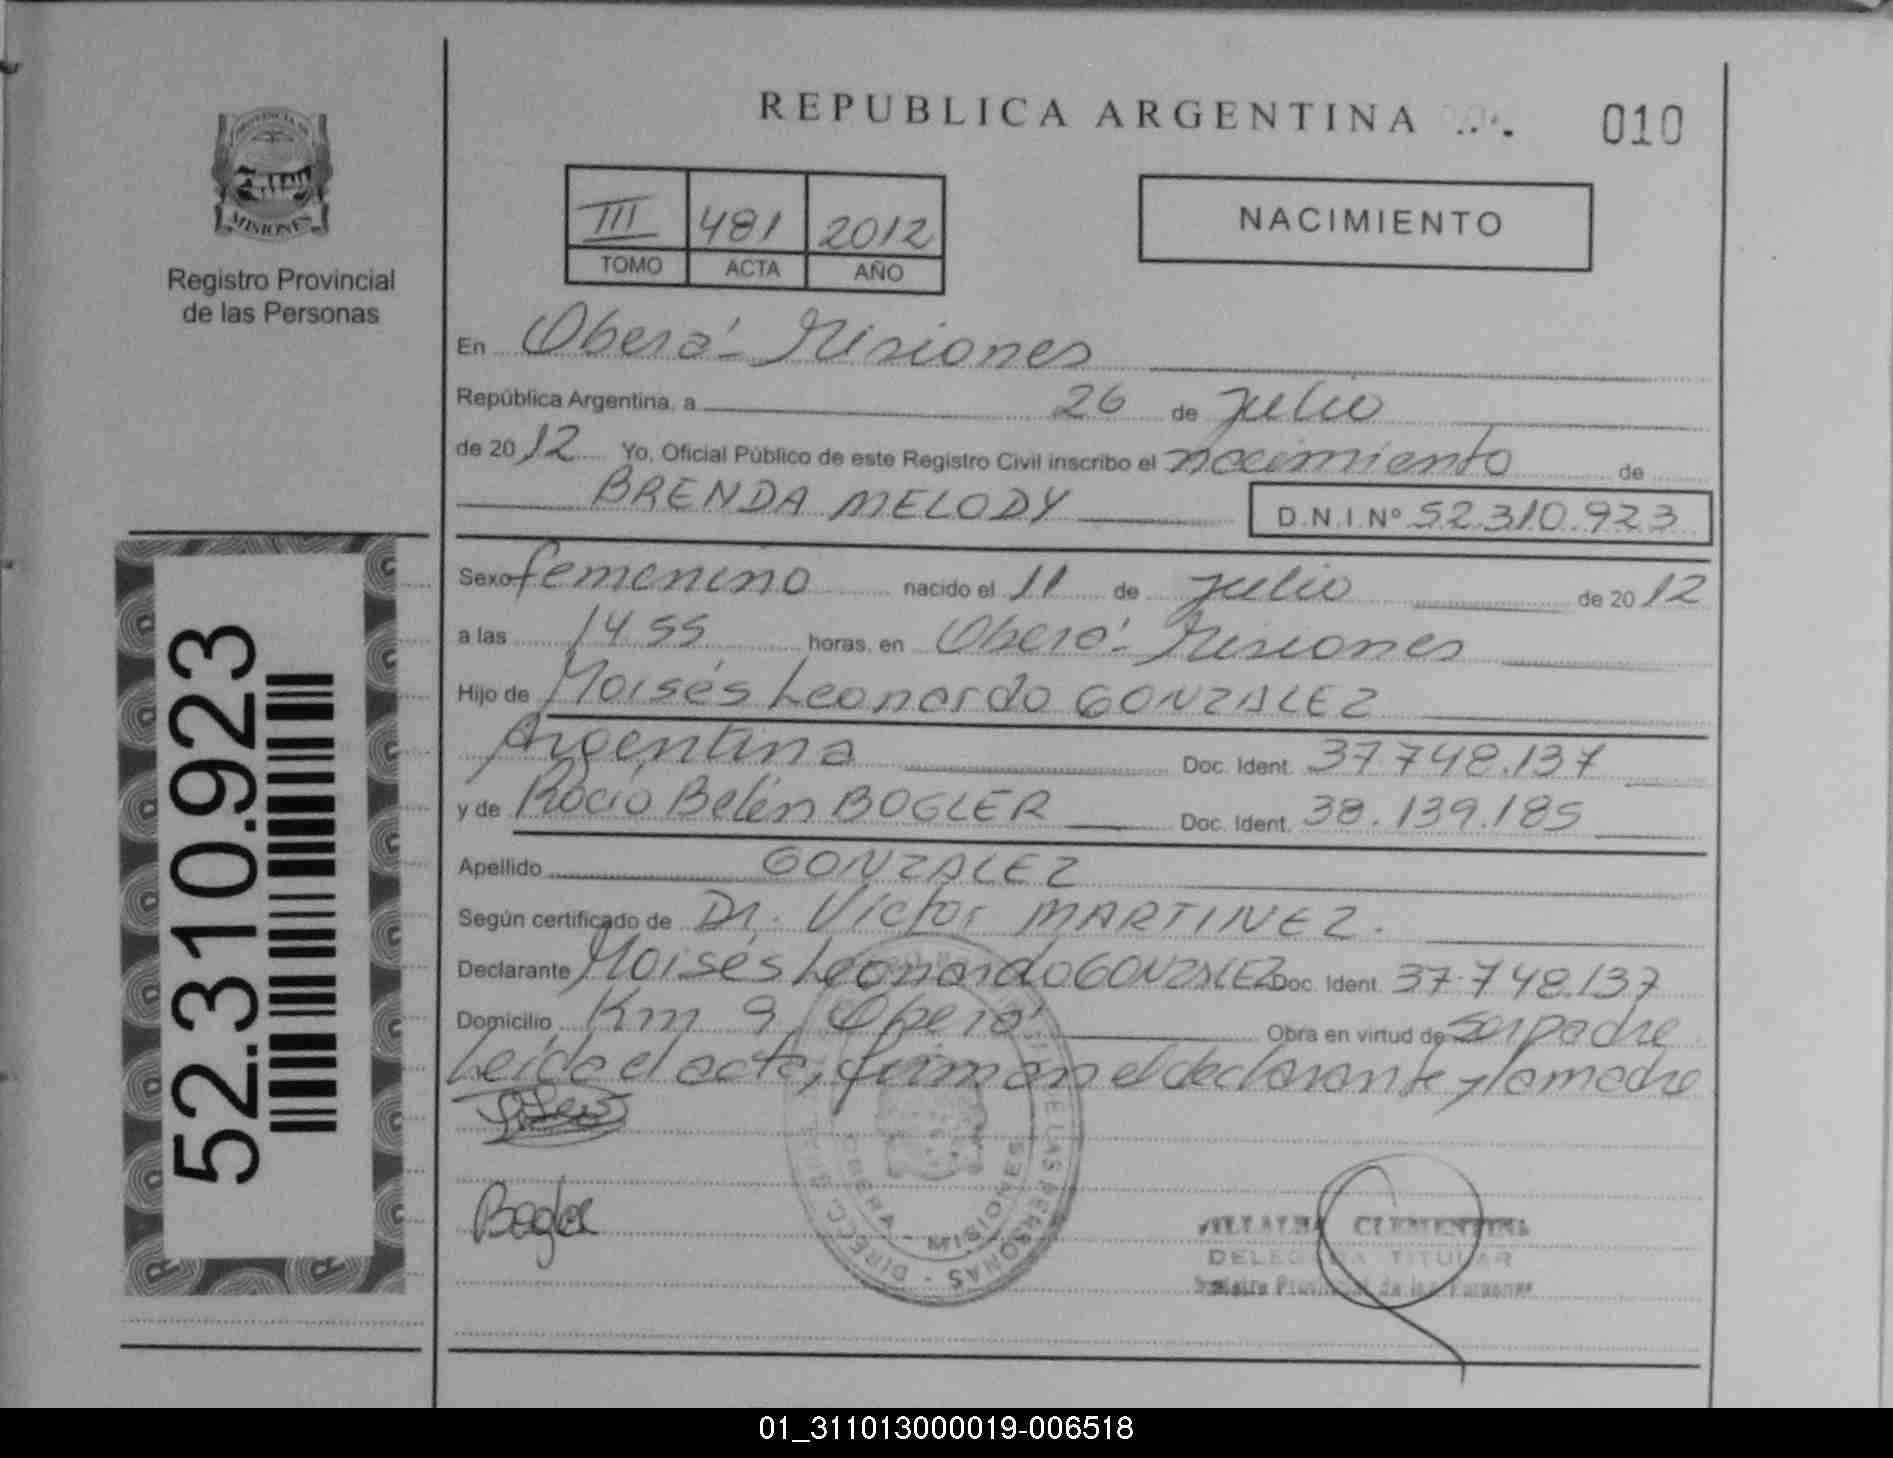 REPUBLICA ARGENTINA
010
PROVINCIA DE
MISIONES
Registro Provincial
de las Personas
III 481 2012
TOMO ACTA AÑO
NACIMIENTO
En Oberá - Misiones
República Argentina, a 26 de Julio
de 2012 Yo, Oficial Público de este Registro Civil inscribo el nacimiento de
BRENDA MELODY D.N.I.Nº 52.310.923
Sexo femenino nacido el 11 de julio de 2012
a las 14 55 horas, en Oberá - Misiones
Hijo de Moisés Leonardo GONZALEZ
Argentina Doc. Ident. 37.748.137
y de Rocío Belén BOGLER Doc. Ident. 38.139.185
Apellido GONZALEZ
Según certificado de Dr. Victor MARTINEZ.
Declarante Moisés Leonardo GONZALEZ Doc. Ident. 37.748.137
Domicilio Km 9, Oberá Obra en virtud de ser padre
Leída el acta, firman el declarante y la madre
52.310.923
Bogler
DE LAS PERSONAS
OBERA - MISIONES
VILLALBA CLEMENTINA
DELEGADA TITULAR
Registro Provincial de las Personas
01_311013000019-006518